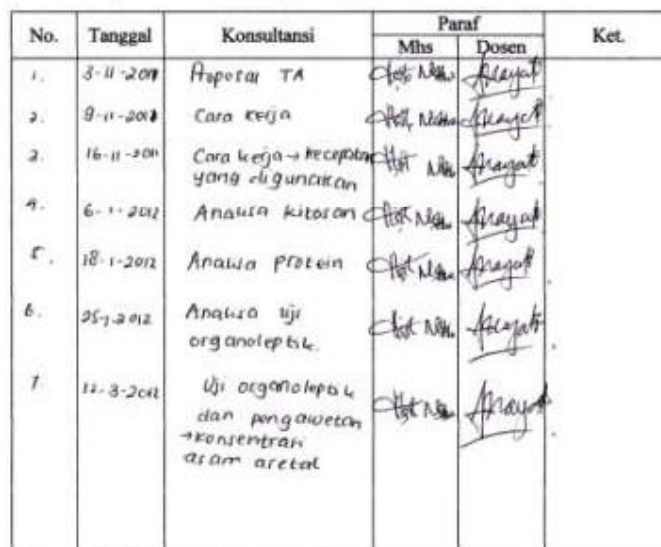 No. Tanggal Konsultansi Paraf Ket.
Mhs Dosen
1. 3-11-2011 Proposal TA
2. 9-11-2011 Cara kerja
3. 16-11-2011 Cara kerja → kecepatan
yang digunakan
4. 6-1-2012 Analisa kitosan
5. 18-1-2012 Analisa protein
6. 25-1-2012 Analisa uji
organoleptik.
7. 12-3-2012 Uji organoleptik
dan pengawetan
→ konsentrasi
asam asetat